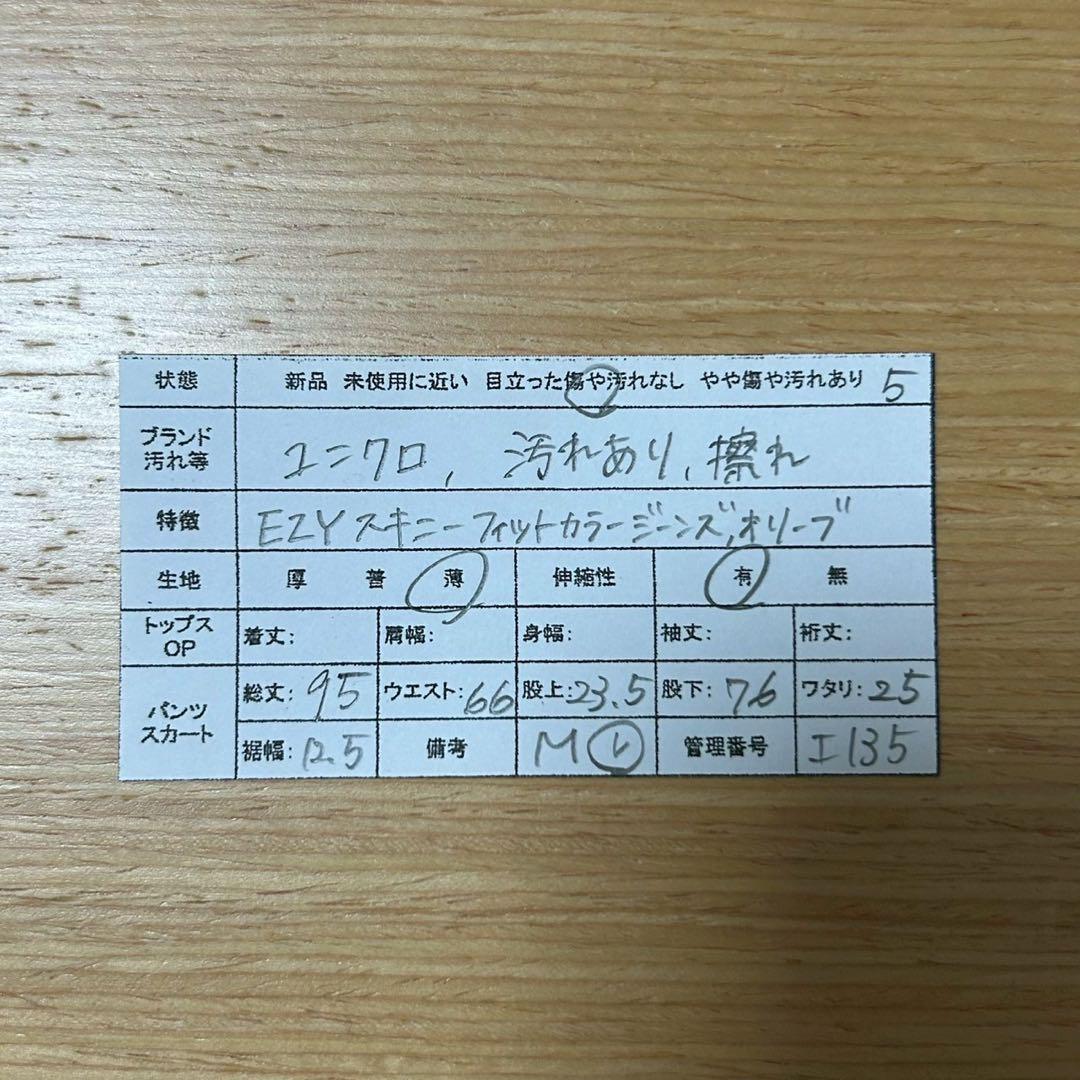 状態 新品 未使用に近い 目立った傷や汚れなし やや傷や汚れあり 5
ブランド 汚れ等 ユニクロ, 汚れあり, 擦れ
特徴 EZYスキニーフィットカラージーンズ, オリーブ
生地 厚 普 薄 伸縮性 有 無
トップス OP 着丈: 肩幅: 身幅: 袖丈: 裄丈:
パンツ スカート 総丈: 95 ウエスト: 66 股上: 23.5 股下: 76 ワタリ: 25
裾幅: 12.5 備考 M レ 管理番号 I135